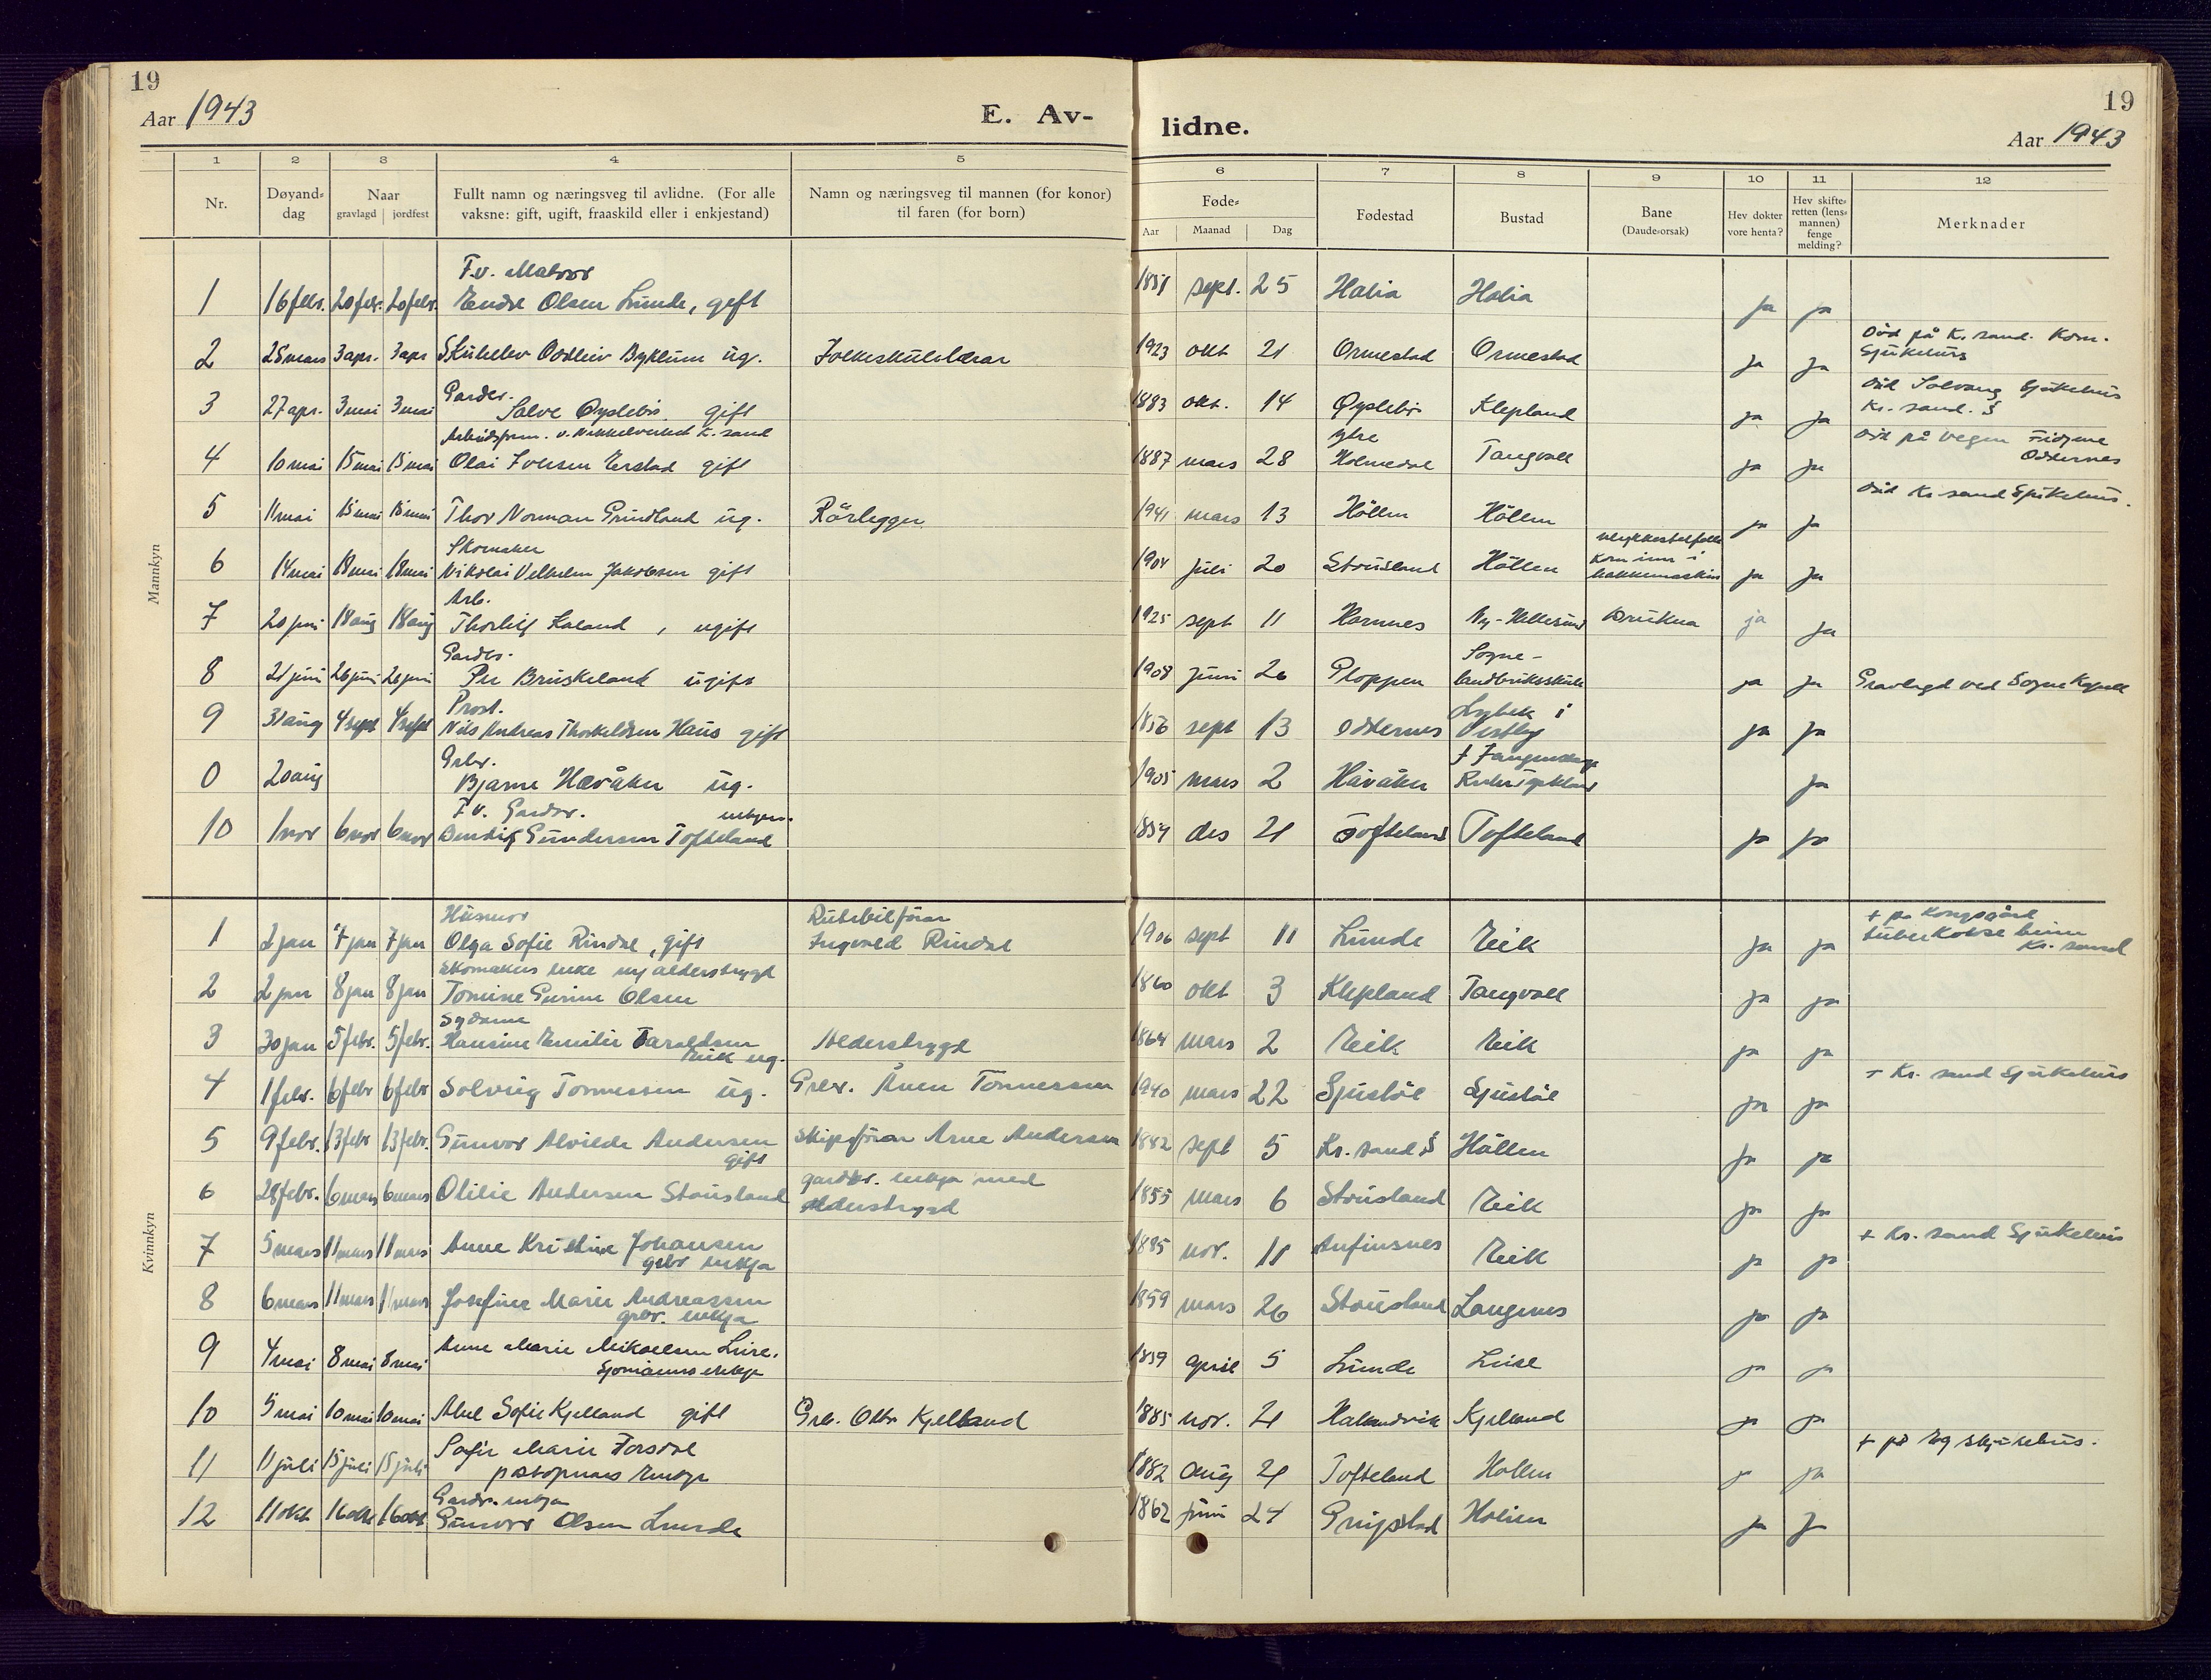 19
Aar 1943
E. Av-
lidne.
19
Aar 1943
1 2 3 4 5 6 7 8 9 10 11 12
Nr.
Døyand-
dag
Naar
gravlagd jordfest
Fullt namn og næringsveg til avlidne. (For alle
vaksne: gift, ugift, fraaskild eller i enkjestand)
Namn og næringsveg til mannen (for konor)
til faren (for born)
Føde-
Aar Maanad Dag
Fødestad
Bustad
Bane
(Daude-orsak)
Hev dokter
vore henta?
Hev skifte-
retten (lens-
mannen)
fenge
melding?
Merknader
Mannkyn
F.v. Matros
1 16 febr. 20 febr. 20 febr. Endre Olsen Lunde, gift 1851 sept. 25 Høllia Høllia ja ja
Død på K. sand. Kom.
2 28 mars 3 apr. 3 apr Oddleiv Byklum ug. Folkeskulelærar 1923 okt 21 Ormestad Ormestad ja ja Sjukehus
Gardbr. Død Solvang Sjukehus
3 27 apr. 3 mai 3 mai Salve Øyslebø gift 1883 okt. 14 Øyslebø Klepland ja ja Kr. sand. S
Arbeidsform. v. Nikkelverket K. sand ytre Død på vegen Fidjane
4 10 mai 15 mai 15 mai Olai Iversen Erstad gift 1887 mars 28 Holmedal Tangvall ja ja Oddernes
5 11 mai 15 mai 15 mai Thor Norman Grundland ug. Rørlegger 1941 mars 13 Høllen Høllen ja ja Død Kr sand Sjukehus.
Skomaker ulykkestilfelle
kom inn i
6 14 mai 18 mai 18 mai Nikolai Velhelm Jakobsen gift 1904 juli 20 Stausland Høllen hakkemaskin ja ja
Arb.
7 20 juni 18 aug 18 aug Thorleif Haland, ugift 1925 sept 11 Hamnes Ny-Hellesund Drukna ja ja
Gardbr. Søgne-
8 21 juni 26 juni 26 juni Per Bruskeland ugift 1908 juni 26 Ploppen landbruksskule ja ja Gravlagd ved Søgne Kapell
Prost. i
9 31 aug 4 sept 4 sept Nils Andreas Thorkildsen Haus gift 1856 sept 13 Oddernes Vestby ja ja
Grbr.
0 20 aug Bjarne Hævåker ug. 1905 mars 2 Håvåker ja
F.v. Gardbr. enkjem.
10 1 nov 6 nov 6 nov Bendix Gundersen Tofteland 1854 des 21 Tofteland Tofteland ja ja
Kvinnkyn
Husmor Rutebilførar + på Kongsgård
1 2 jan 7 jan 7 jan Olga Sofie Rindal, gift Ingvald Rindal 1906 sept 11 Lunde Eik ja ja tuberkolse heim
Kr. sand
Skomakers enke alderstrygd
2 2 jan 8 jan 8 jan Tomine Gurine Olsen 1860 okt 3 Klepland Tangvall ja ja
Sydame
3 30 jan 5 febr. 5 febr. Hansine Emilie Taraldsen Alderstrygd 1864 mars 2 Eik Eik ja ja
Eik ug.
4 1 febr. 6 febr 6 febr Solveig Tønnessen ug. Grbr. Ånen Tønnessen 1940 mars 22 Sjustøl Sjustøl ja ja + Kr. sand Sjukehus
5 9 febr. 13 febr 13 febr. Gunvor Alvilde Andersen Skipsførar Arne Andersen 1882 sept 5 Kr. sand S Høllen ja ja
gift
6 28 febr. 6 mars 6 mars Otilie Andersen Stausland gardbr. enkja med 1855 mars 6 Stausland Eik ja ja
alderstrygd
7 5 mars 11 mars 11 mars Anne Kristine Johansen 1885 nov. 11 Anfinsnes Eik ja ja + Kr. sand Sjukehus
grbr enkja
8 6 mars 11 mars 11 mars Josefine Marie Andreassen 1859 mars 26 Stausland Langenes ja ja
grbr. enkja
9 4 mai 8 mai 8 mai Anne Marie Mikaelsen 1859 april 5 Lunde ja ja
Sjømanns enkje
10 5 mai 10 mai 10 mai Abel Sofie Kjelland gift Grb. Kjelland 1885 nov. 21 Halandvik Kjelland ja ja
11 11 juli 15 juli 15 juli Sofie Marie Torsdal 1882 aug 21 Tofteland Høllen ja ja + på Eg sjukehus.
Gardbr. enkja
12 11 okt 16 okt 16 okt Gunvor Olsen Lunde 1862 juni 24 Gripstad ja ja